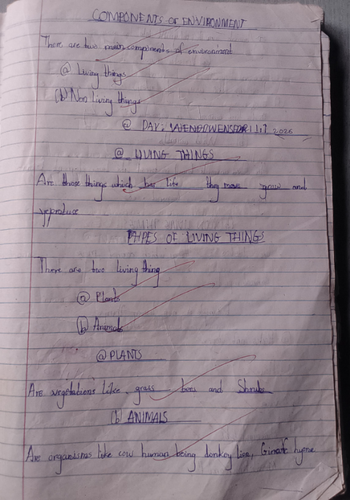 COMPONENTS OF ENVIRONMENT
There are two main components of environment
(a) Living things
(b) Non living things
@ DAY: WENEDWENSDAY 1st 2026
@ LIVING THINGS
Are those things which has life they move grow and
reproduce
TYPES OF LIVING THINGS
There are two living thing
(a) Plants
(b) Animals
@ PLANTS
Are vegetations like grass trees and Shrub
(b) ANIMALS
Are organisms like cow human being donkey lion, Giraffe hyne